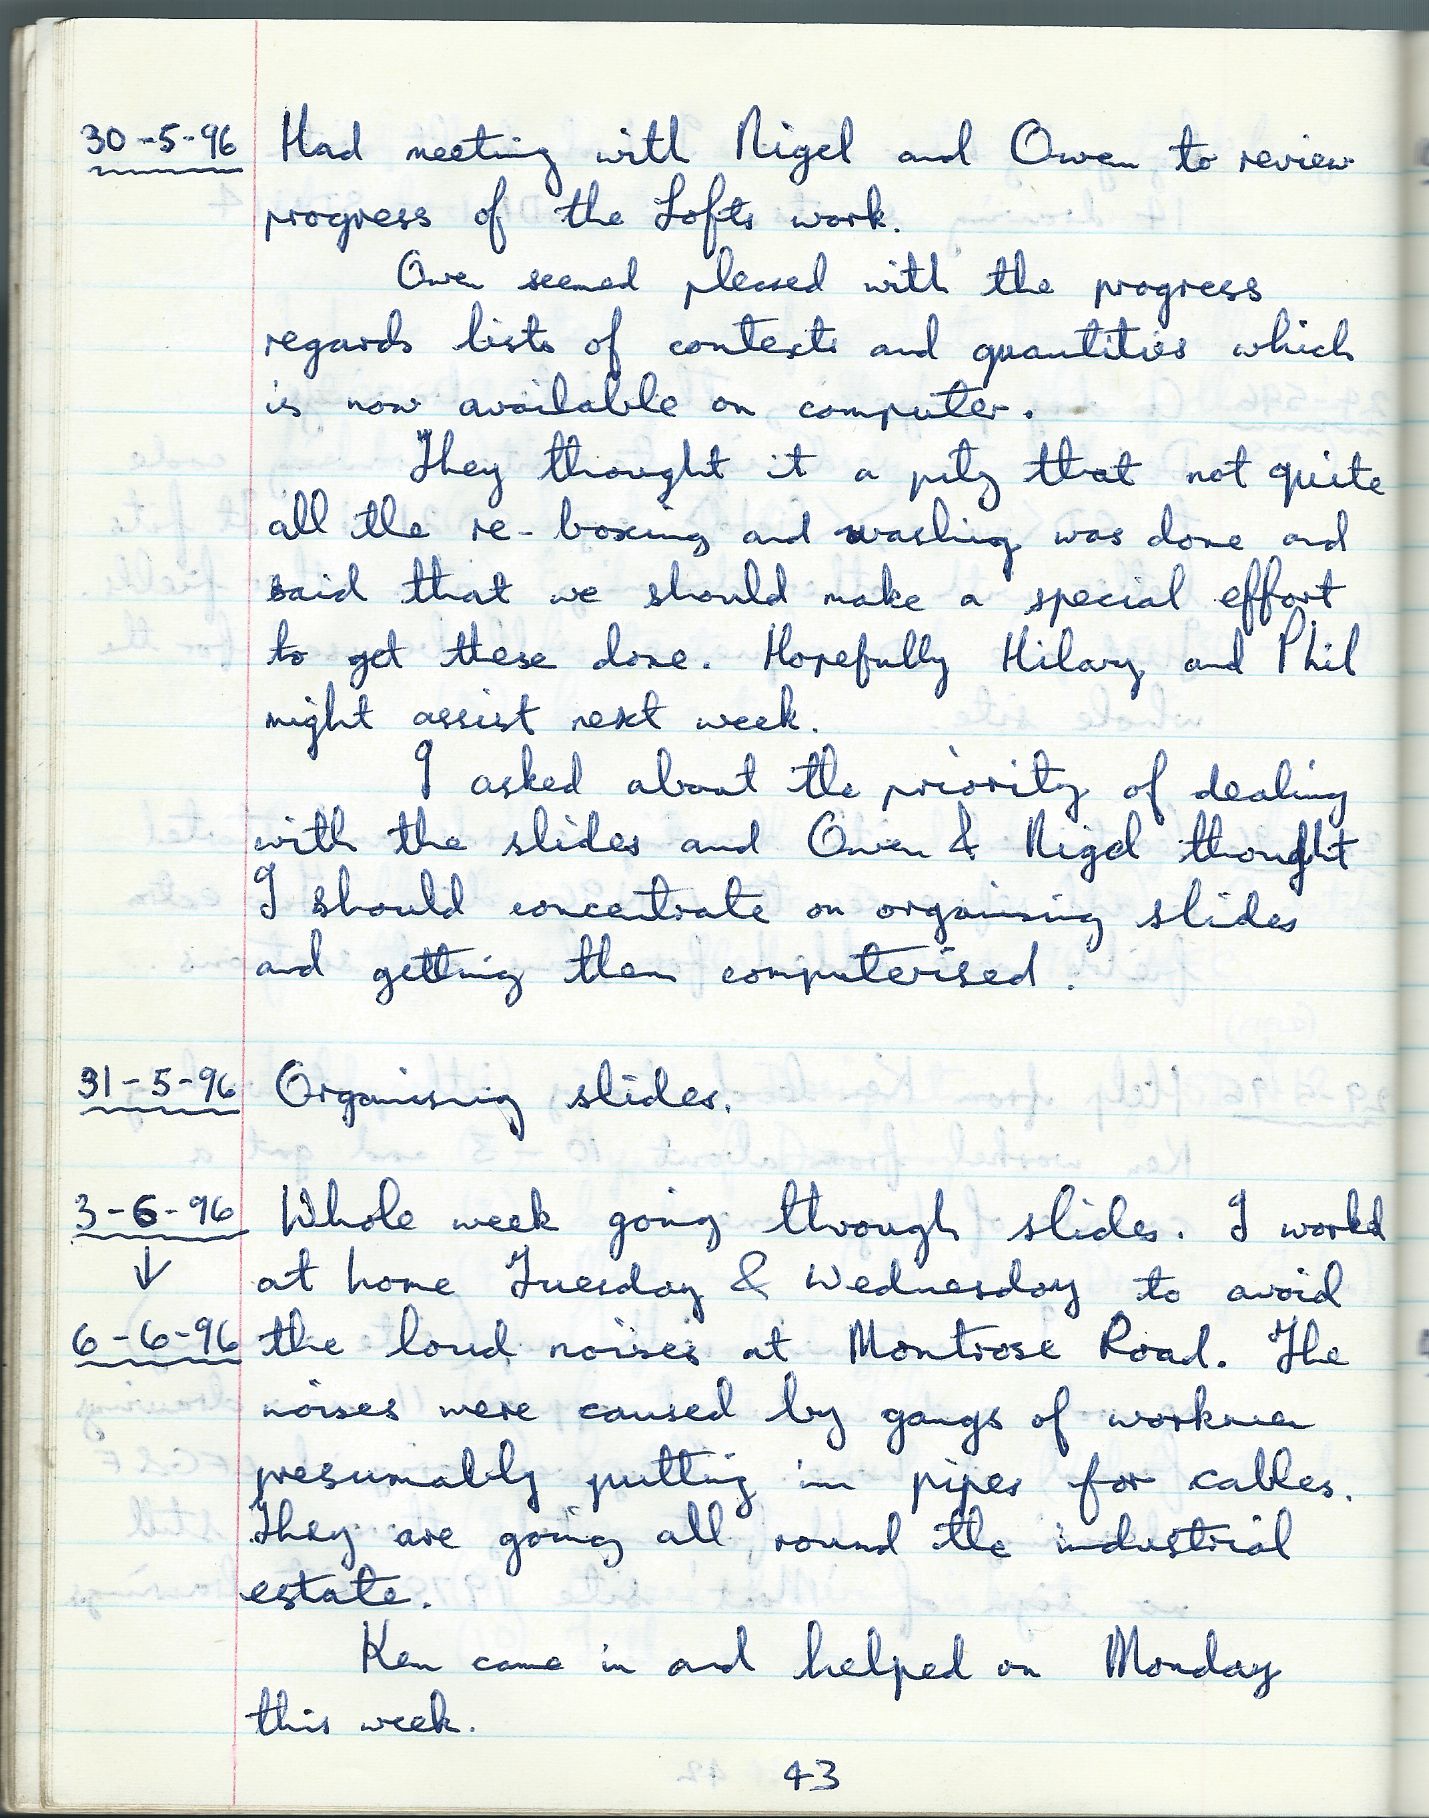 30-5-96 Had meeting with Nigel and Owen to review
progress of the Lofts work.
Owen seemed pleased with the progress
regards lists of contexts and quantities which
is now available on computer.
They thought it a pity that not quite
all the re-boxing and washing was done and
said that we should make a special effort
to get these done. Hopefully Hilary and Phil
might assist next week.
I asked about the priority of dealing
with the slides and Owen & Nigel thought
I should concentrate on organising slides
and getting them computerised.
31-5-96 Organising slides.
3-6-96 Whole week going through slides. I workd
↓ at home Tuesday & Wednesday to avoid
6-6-96 the loud noises at Montrose Road. The
noises were caused by gangs of workmen
presumably putting in pipes for cables.
They are going all round the industrial
estate.
Ken came in and helped on Monday
this week.
43